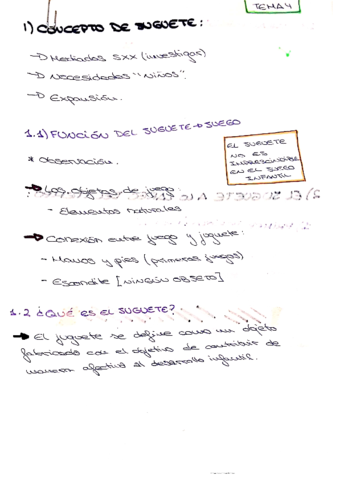 TEMA 4
1) CONCEPTO DE JUGUETE:
→ Mediados SXX (investigar)
→ Necesidades "niños".
→ Expansión.
1.1) FUNCIÓN DEL JUGUETE → JUEGO
EL JUGUETE
NO ES
IMPRESCINDIBLE
EN EL JUEGO
INFANTIL
* Observación.
→ Los objetos de juego:
- Elementos naturales
→ Conexión entre juego y juguete:
- Manos y pies (primeros juegos)
- Escondite [NINGÚN OBJETO]
1.2 ¿QUÉ ES EL JUGUETE?
→ El juguete se define como un objeto
fabricado con el objetivo de contribuir de
manera afectiva al desarrollo infantil.